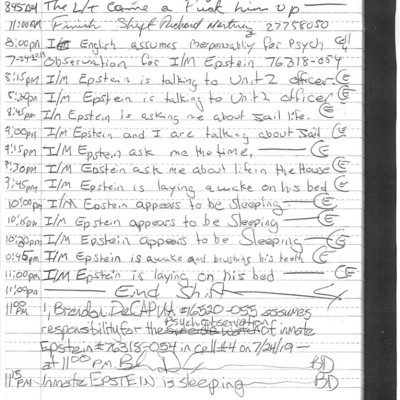 8:45AM The L/T came a Pick him up
11:00AM Finish Shift Richard 27758050
8:00pm I/M English assumes Responsably for Psych Cell 4
7-24-19 Observation for I/M Epstein 76318-054
8:15pm I/M Epstein is talking to Unit 2 officer. CE
8:30pm I/M Epstein is talking to Unit 2 officer CE
8:45pm I/m Epstein is asking me about Jail life. CE
9:00pm I/M Epstein and I are talking about Jail. CE
9:15pm I/M Epstein ask me the time. CE
9:30pm I/M Epstein ask me about life in the House CE
9:45pm I/M Epstein is laying awake on his bed CE
10:00pm I/M Epstein appears to be Sleeping. CE
10:15pm I/M Epstein appears to be Sleeping CE
10:30pm I/M Epstein appears to be Sleeping CE
10:45pm I/M Epstein is awake and brushing his teeth CE
11:00pm I/M Epstein is laying on his bed CE
11:00pm End Shift
11:00 PM I, Brendon DeCAPUA #16520-055 assumes
Psych Observation
responsibility for the suicide watch of inmate
Epstein #76318-054 in cell #4 on 7/24/19
at 11:00 P.M. BD
11:15 PM Inmate EPSTEIN is sleeping BD